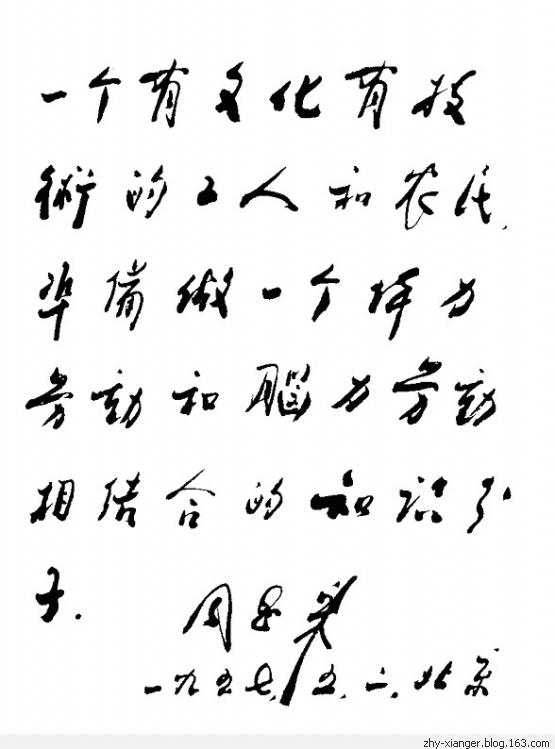 一个有文化有技
術的工人和农民，
準備做一个体力
劳动和腦力劳动
相结合的知识分
子．
周恩来
一九五七．五．二．北京
zhy-xianger.blog.163.com